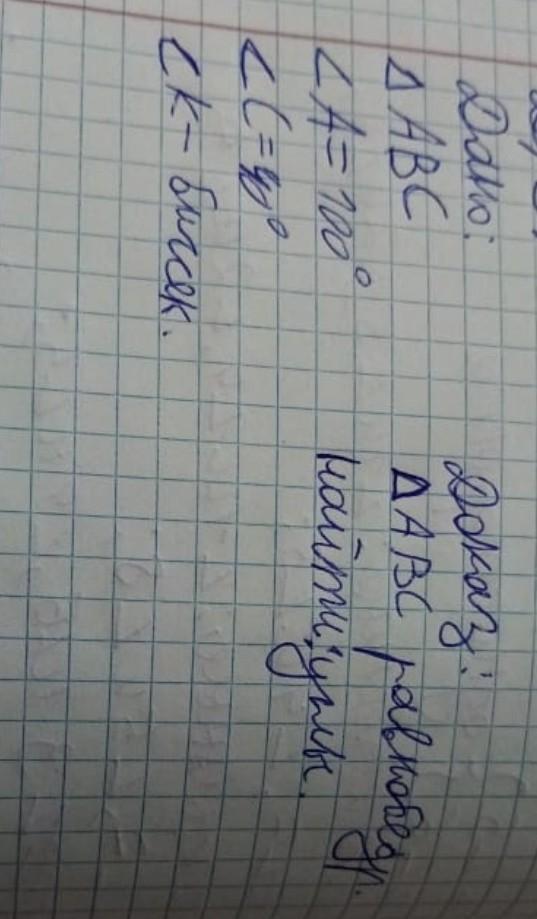 Дано:
Δ ABC
< A = 100°
< C = 40°
CK - биссек.
Доказ:
Δ ABC равнобедр.
найти: углы.